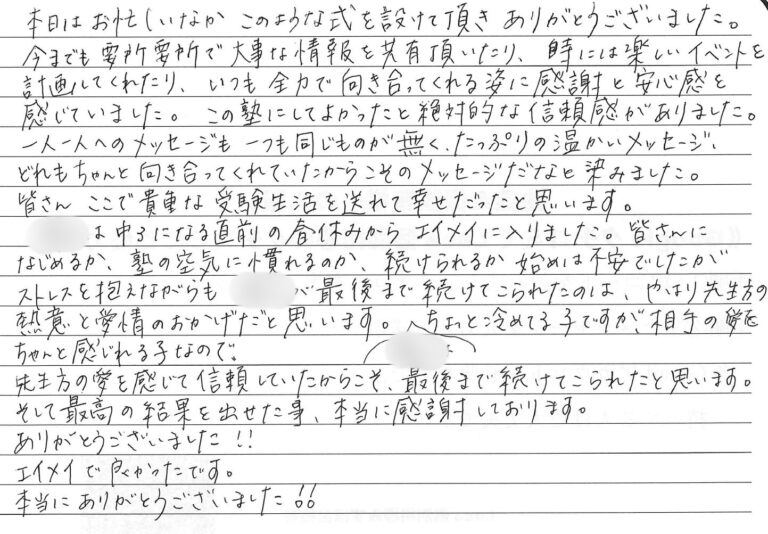 本日はお忙しいなか このような式を設けて頂き ありがとうございました。
今までも要所要所で大事な情報を共有頂いたり、時には楽しいイベントを
計画してくれたり、いつも全力で向き合ってくれる姿に感謝と安心感を
感じていました。この塾にしてよかったと絶対的な信頼感がありました。
一人一人へのメッセージも一つも同じものが無く、たっぷりの温かいメッセージ、
どれもちゃんと向き合ってくれていたからこそのメッセージだなと染みました。
皆さんここで貴重な受験生活を送れて幸せだったと思います。
は中3になる直前の春休みからエイメイに入りました。皆さんに
なじめるか、塾の空気に慣れるのか、続けられるか始めは不安でしたが
ストレスを抱えながらも が最後まで続けてこられたのは、やはり先生方の
熱意と愛情のおかげだと思います。ちょっと冷めてる子ですが、相手の愛を
ちゃんと感じれる子なので、
先生方の愛を感じて信頼していたからこそ、最後まで続けてこられたと思います。
そして最高の結果を出せた事、本当に感謝しております。
ありがとうございました!!
エイメイで良かったです。
本当にありがとうございました!!